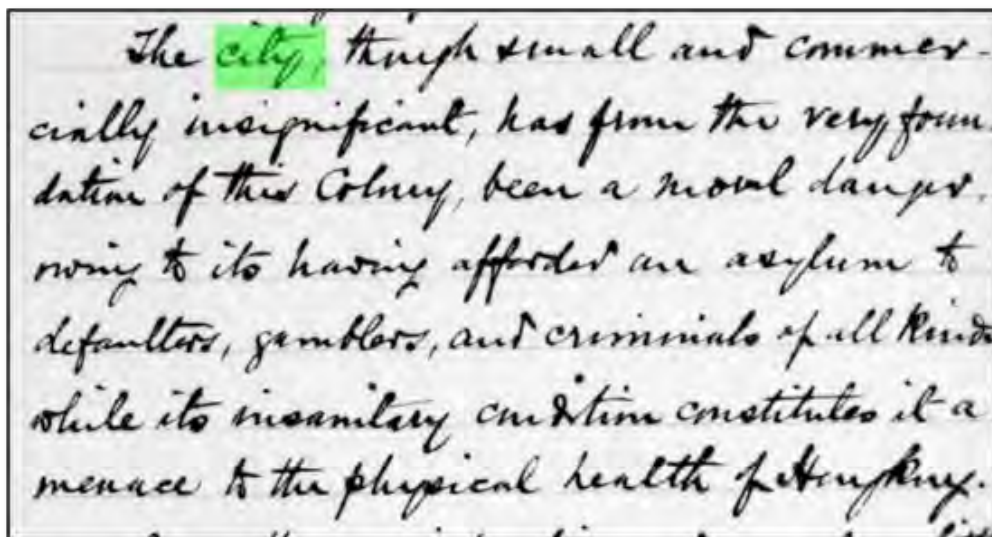 The city, though small and commer-
cially insignificant, has from the very foun-
dation of this Colony, been a moral danger,
owing to its having afforded an asylum to
defaulters, gamblers, and criminals of all kinds
while its insanitary condition constitutes it a
menace to the physical health of Hongkong.